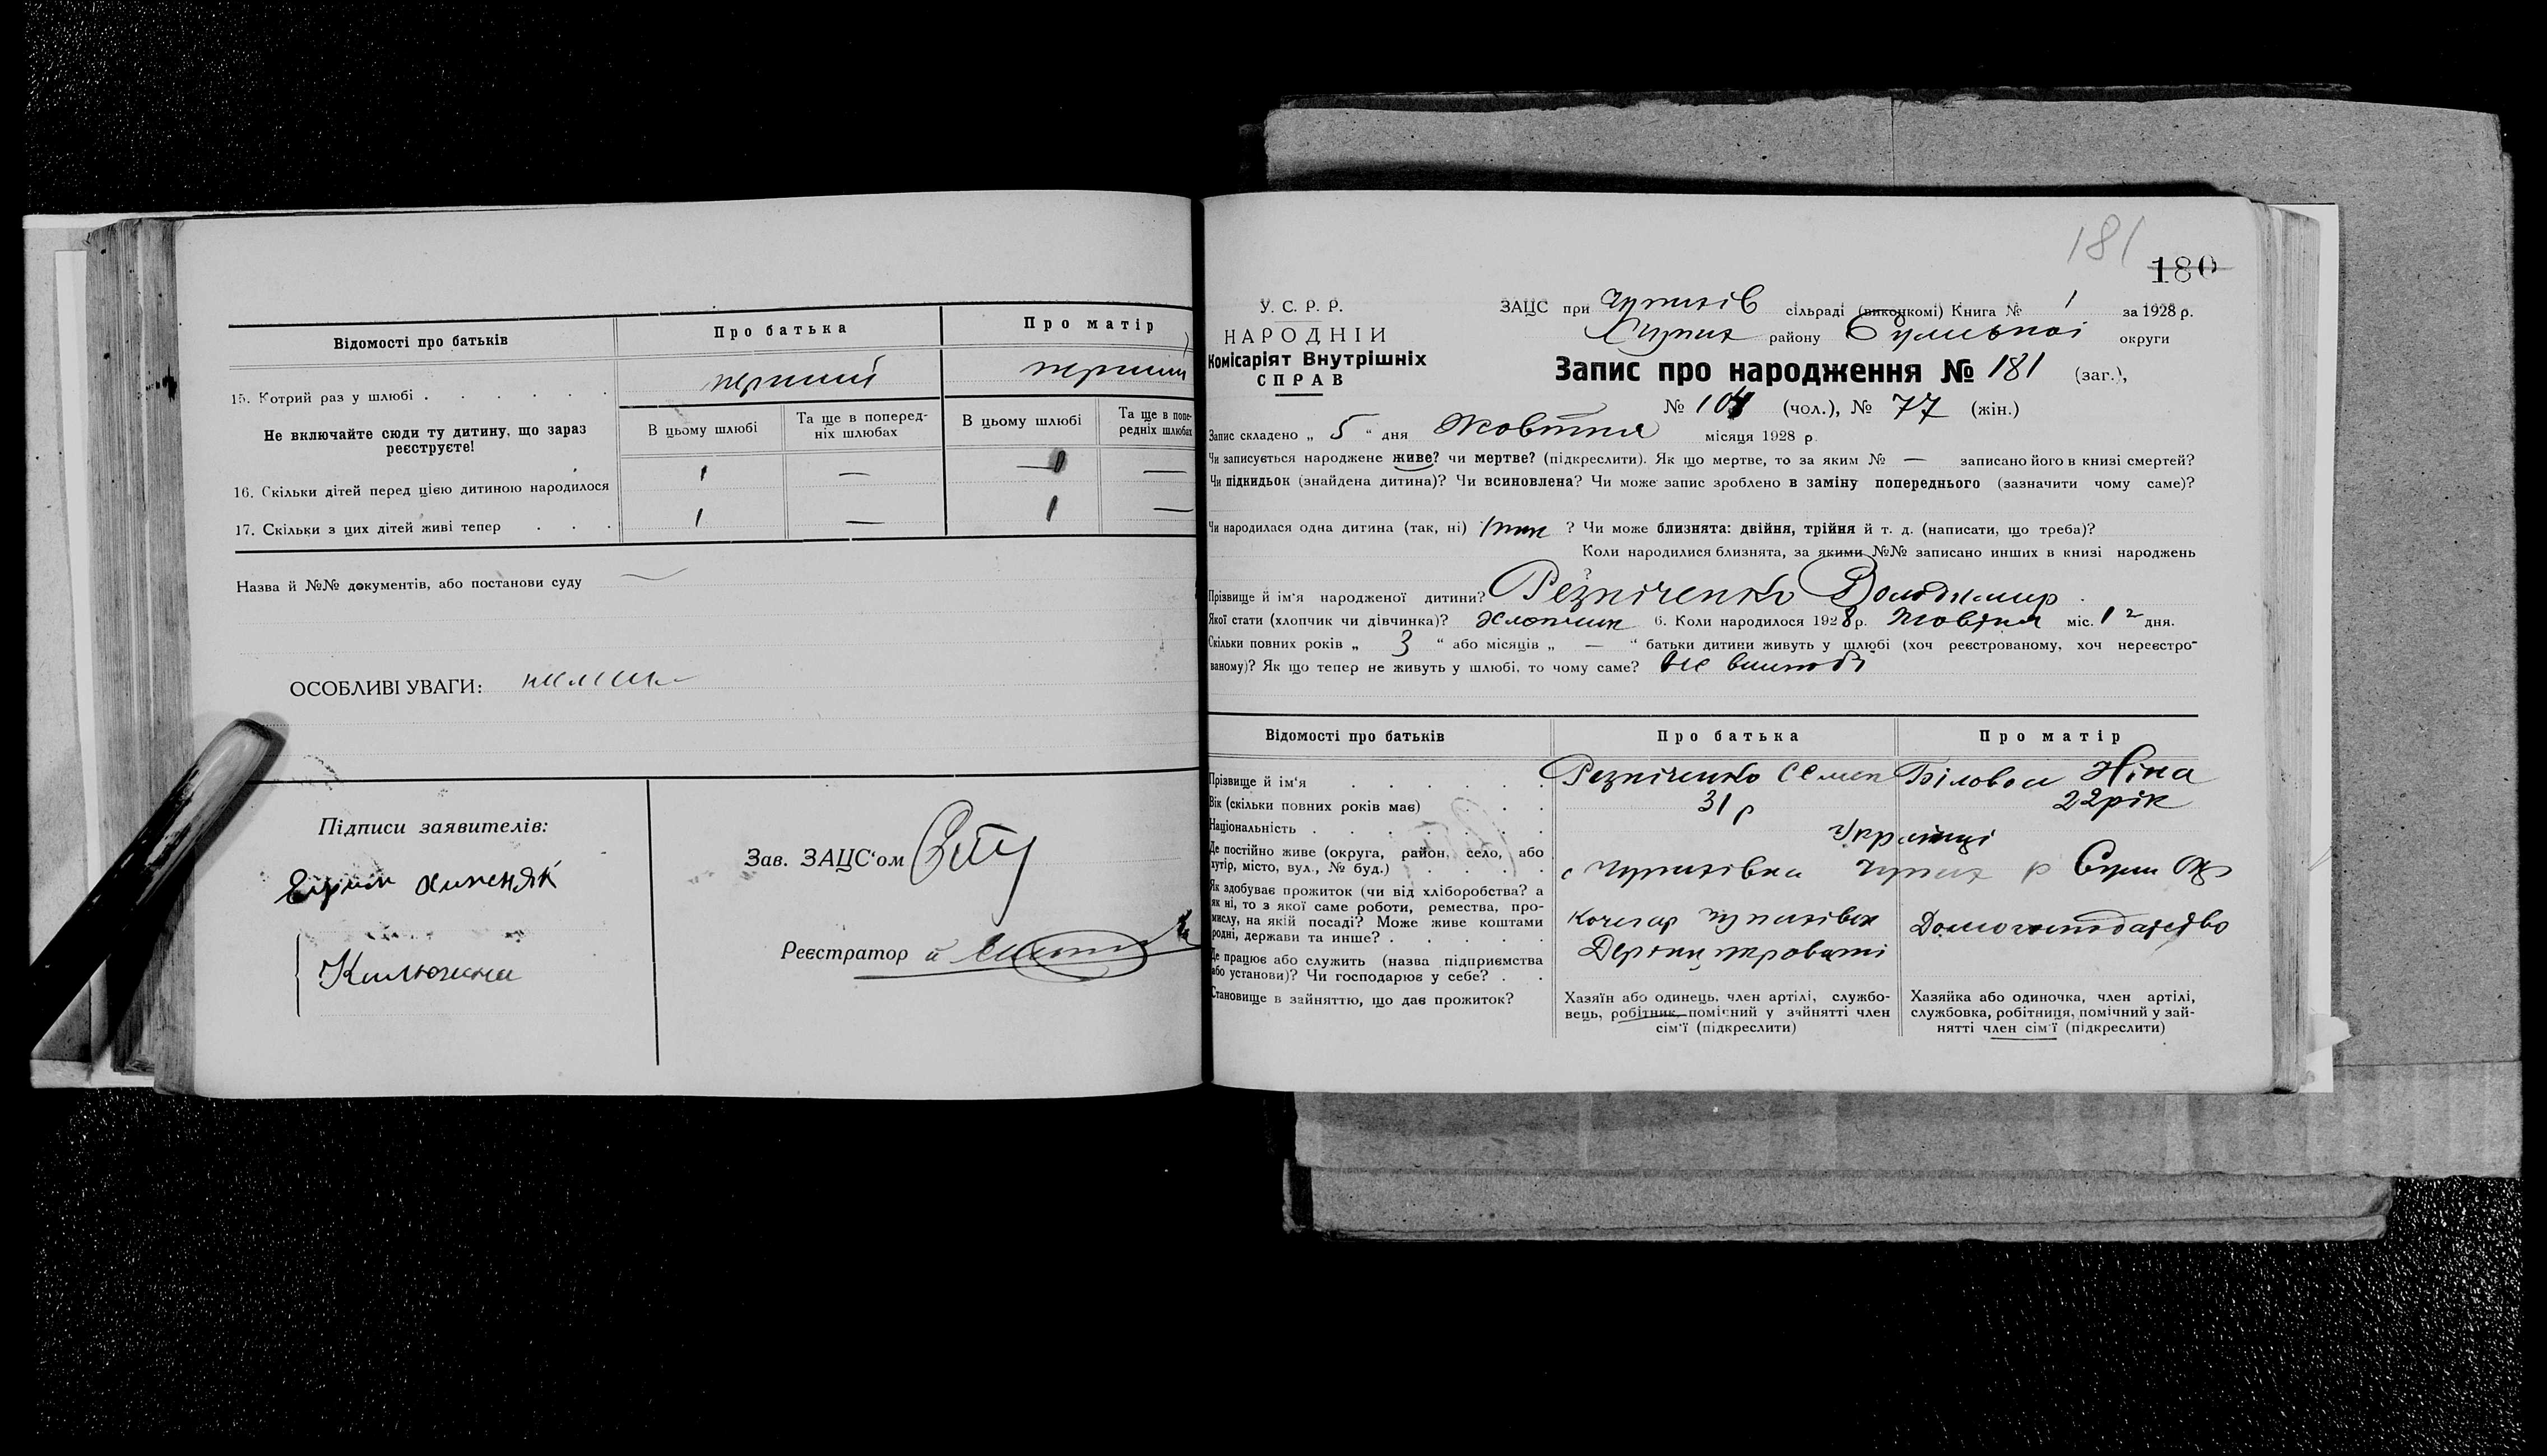 Відомості про батьків
Про батька
Про матір
15. Котрий раз у шлюбі
перший
перший
Не включайте сюди ту дитину, що зараз реєструєте!
В цьому шлюбі
Та ще в поперед-
ніх шлюбах
В цьому шлюбі
Та ще в попе-
редніх шлюбах
16. Скільки дітей перед цією дитиною народилося
1 — —
17. Скільки з цих дітей живі тепер
1 — 1 —
Назва й №№ документів, або постанови суду —
ОСОБЛИВІ УВАГИ: немає
Підписи заявителів:
Зав. ЗАЦС'ом
Реєстратор
181
180
У. С. Р. Р.
НАРОДНІЙ
Комісаріят Внутрішніх
СПРАВ
ЗАЦС при сільраді (виконкомі) Книга № 1 за 1928 р.
району Сумської округи
Запис про народження № 181 (заг.),
№ 104 (чол.), № 77 (жін.)
Запис складено „ 5 “ дня Жовтня місяця 1928 р.
Чи записується народжене живе? чи мертве? (підкреслити). Як що мертве, то за яким № — записано його в книзі смертей?
Чи підкидьок (знайдена дитина)? Чи всиновлена? Чи може запис зроблено в заміну попереднього (зазначити чому саме)?
Чи народилася одна дитина (так, ні) так ? Чи може близнята: двійня, трійня й т. д. (написати, що треба)?
Коли народилися близнята, за якими №№ записано инших в книзі народжень
?
Прізвище й ім'я народженої дитини? Резніченко Володимир
Якої стати (хлопчик чи дівчинка)? Хлопчик 6. Коли народилося 1928 р. Жовтня міс. 12 дня.
Скільки повних років „ 3 “ або місяців „ — “ батьки дитини живуть у шлюбі (хоч реєстрованому, хоч нереєстро-
ваному)? Як що тепер не живуть у шлюбі, то чому саме?
Відомості про батьків
Про батька
Про матір
Прізвище й ім'я
Резніченко Семен
Біловол Ніна
Вік (скільки повних років має)
31 р
22 рік
Національність
Українці
Де постійно живе (округа, район, село, або
хутір, місто, вул., № буд.)
с Чупахівка Чупах р Сум
Як здобуває прожиток (чи від хліборобства? а
як ні, то з якої саме роботи, ремества, про-
мислу, на якій посаді? Може живе коштами
родні, держави та инше?
Кочегар Чупахівск
Домогосподарство
Де працює або служить (назва підприємства
або установи)? Чи господарює у себе?
Становище в зайняттю, що дає прожиток?
Хазяїн або одинець, член артілі, службо-
вець, робітник, помічний у зайнятті член
сім'ї (підкреслити)
Хазяйка або одиночка, член артілі,
службовка, робітниця, помічний у зай-
нятті член сім'ї (підкреслити)